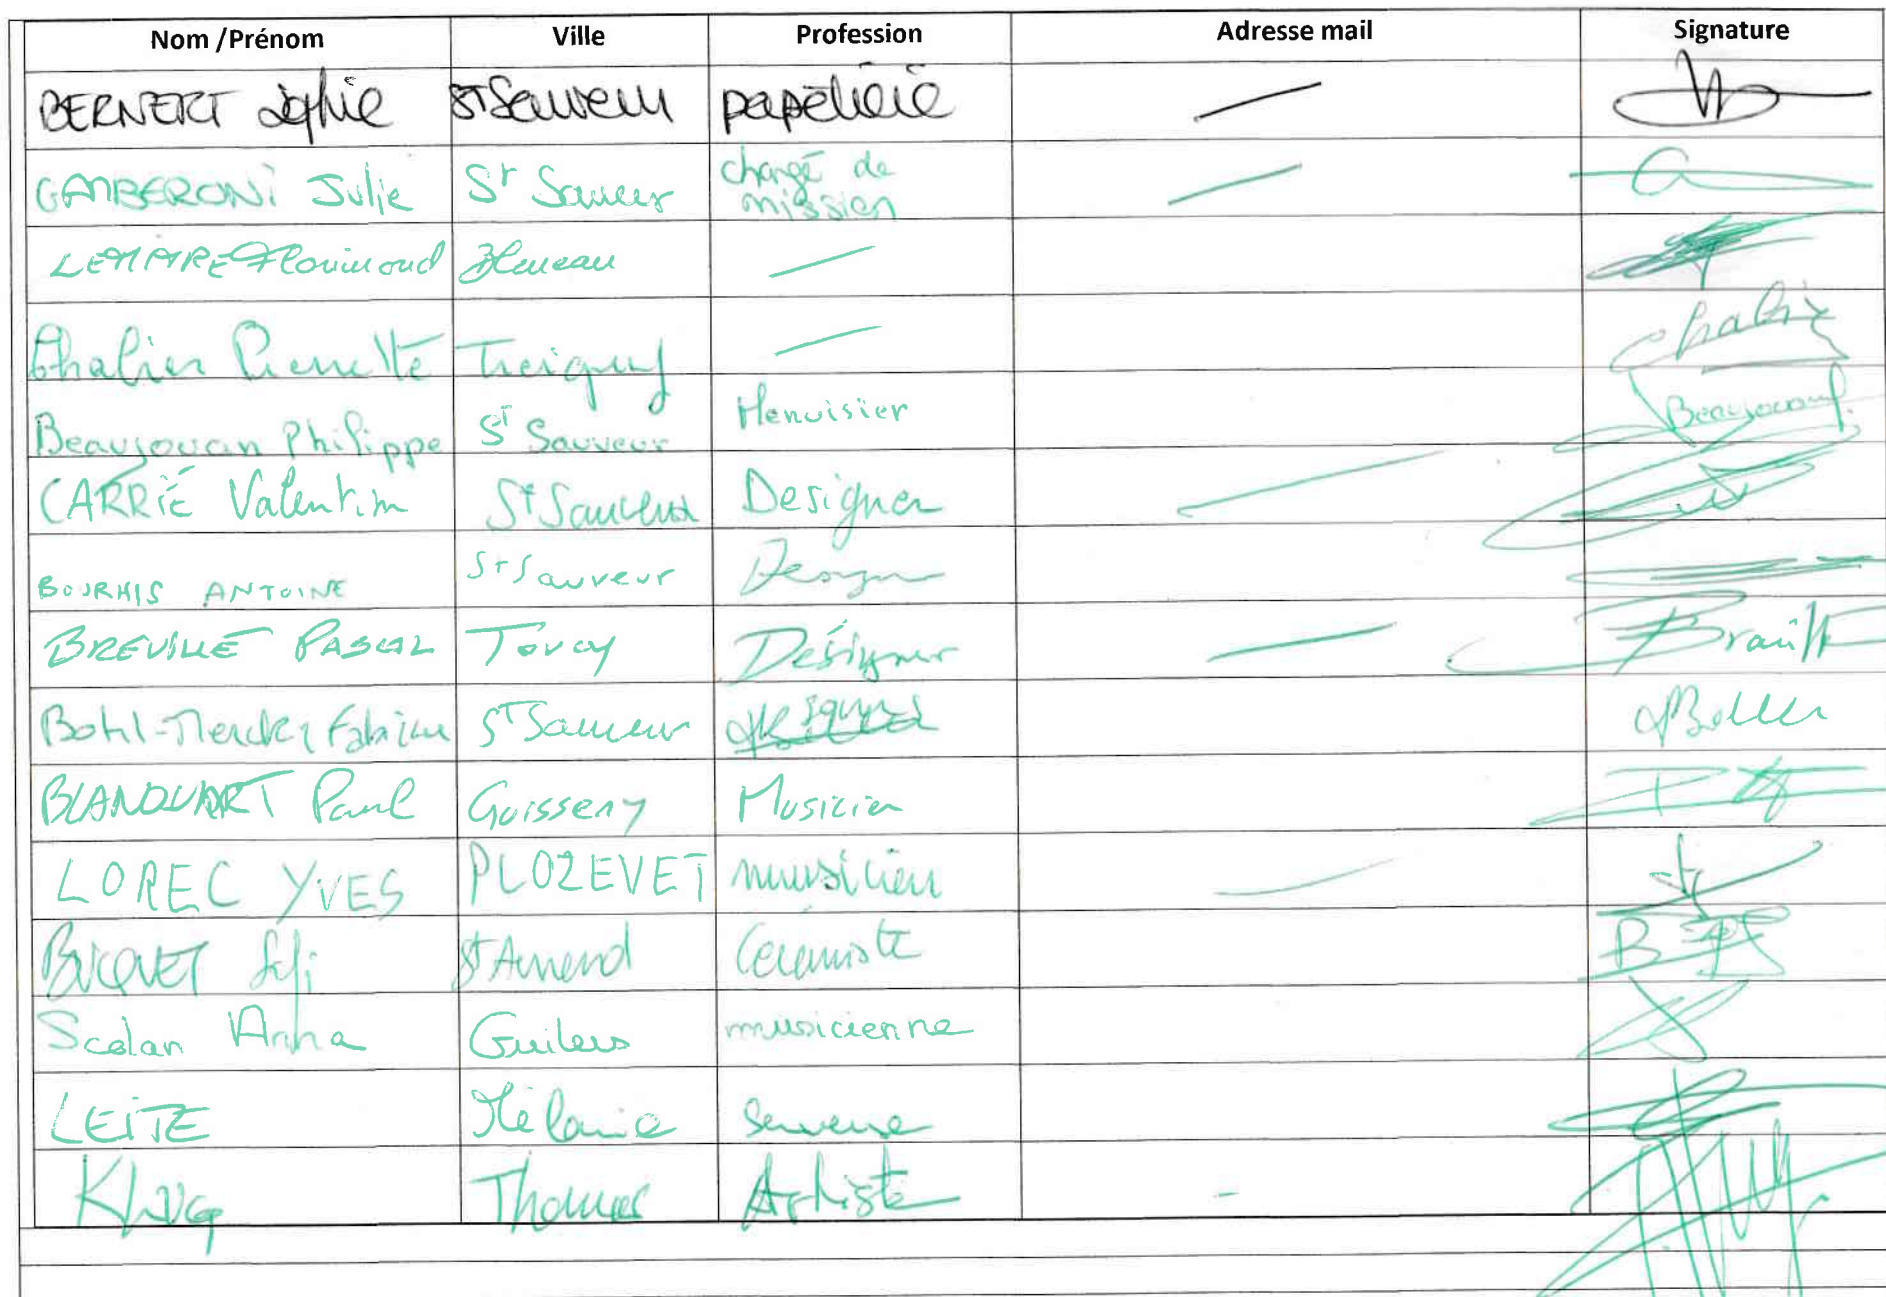 Nom /Prénom Ville Profession Adresse mail Signature
BERNERT Sophie St Sauveur papétière
GAMBERONI Julie St Sauveur chargé de
mission
LEMAIRE Florimond Bleneau
Chalier Pierrette Treigny Chalier
Beaujouan Philippe St Sauveur Menuisier Beaujouan
CARRIÉ Valentin St Sauveur Designer
BOURHIS ANTOINE St Sauveur Design
BREVILLE PASCAL Toucy Désigner
Fabrice St Sauveur
BLANQUART Paul Guisseny Musicien
LOREC YVES PLOZEVET musicien
BUCQUET St Amand Céramiste
Scolan Anna Guilers musicienne
LEITE Mélanie serveuse
Klug Thomas Artiste